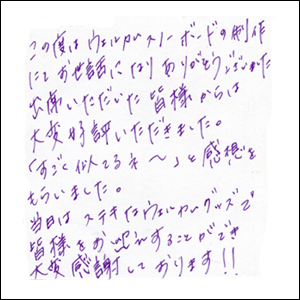 この度はウェルカムスノーボードの制作
にてお世話になりありがとうございました
出席いただいた皆様からは
大変好評いただきました。
「すごく似てるネ～」と感想を
もらいました。
当日はステキなウェルカムグッズで
皆様をお迎えすることができ
大変感謝しております!!